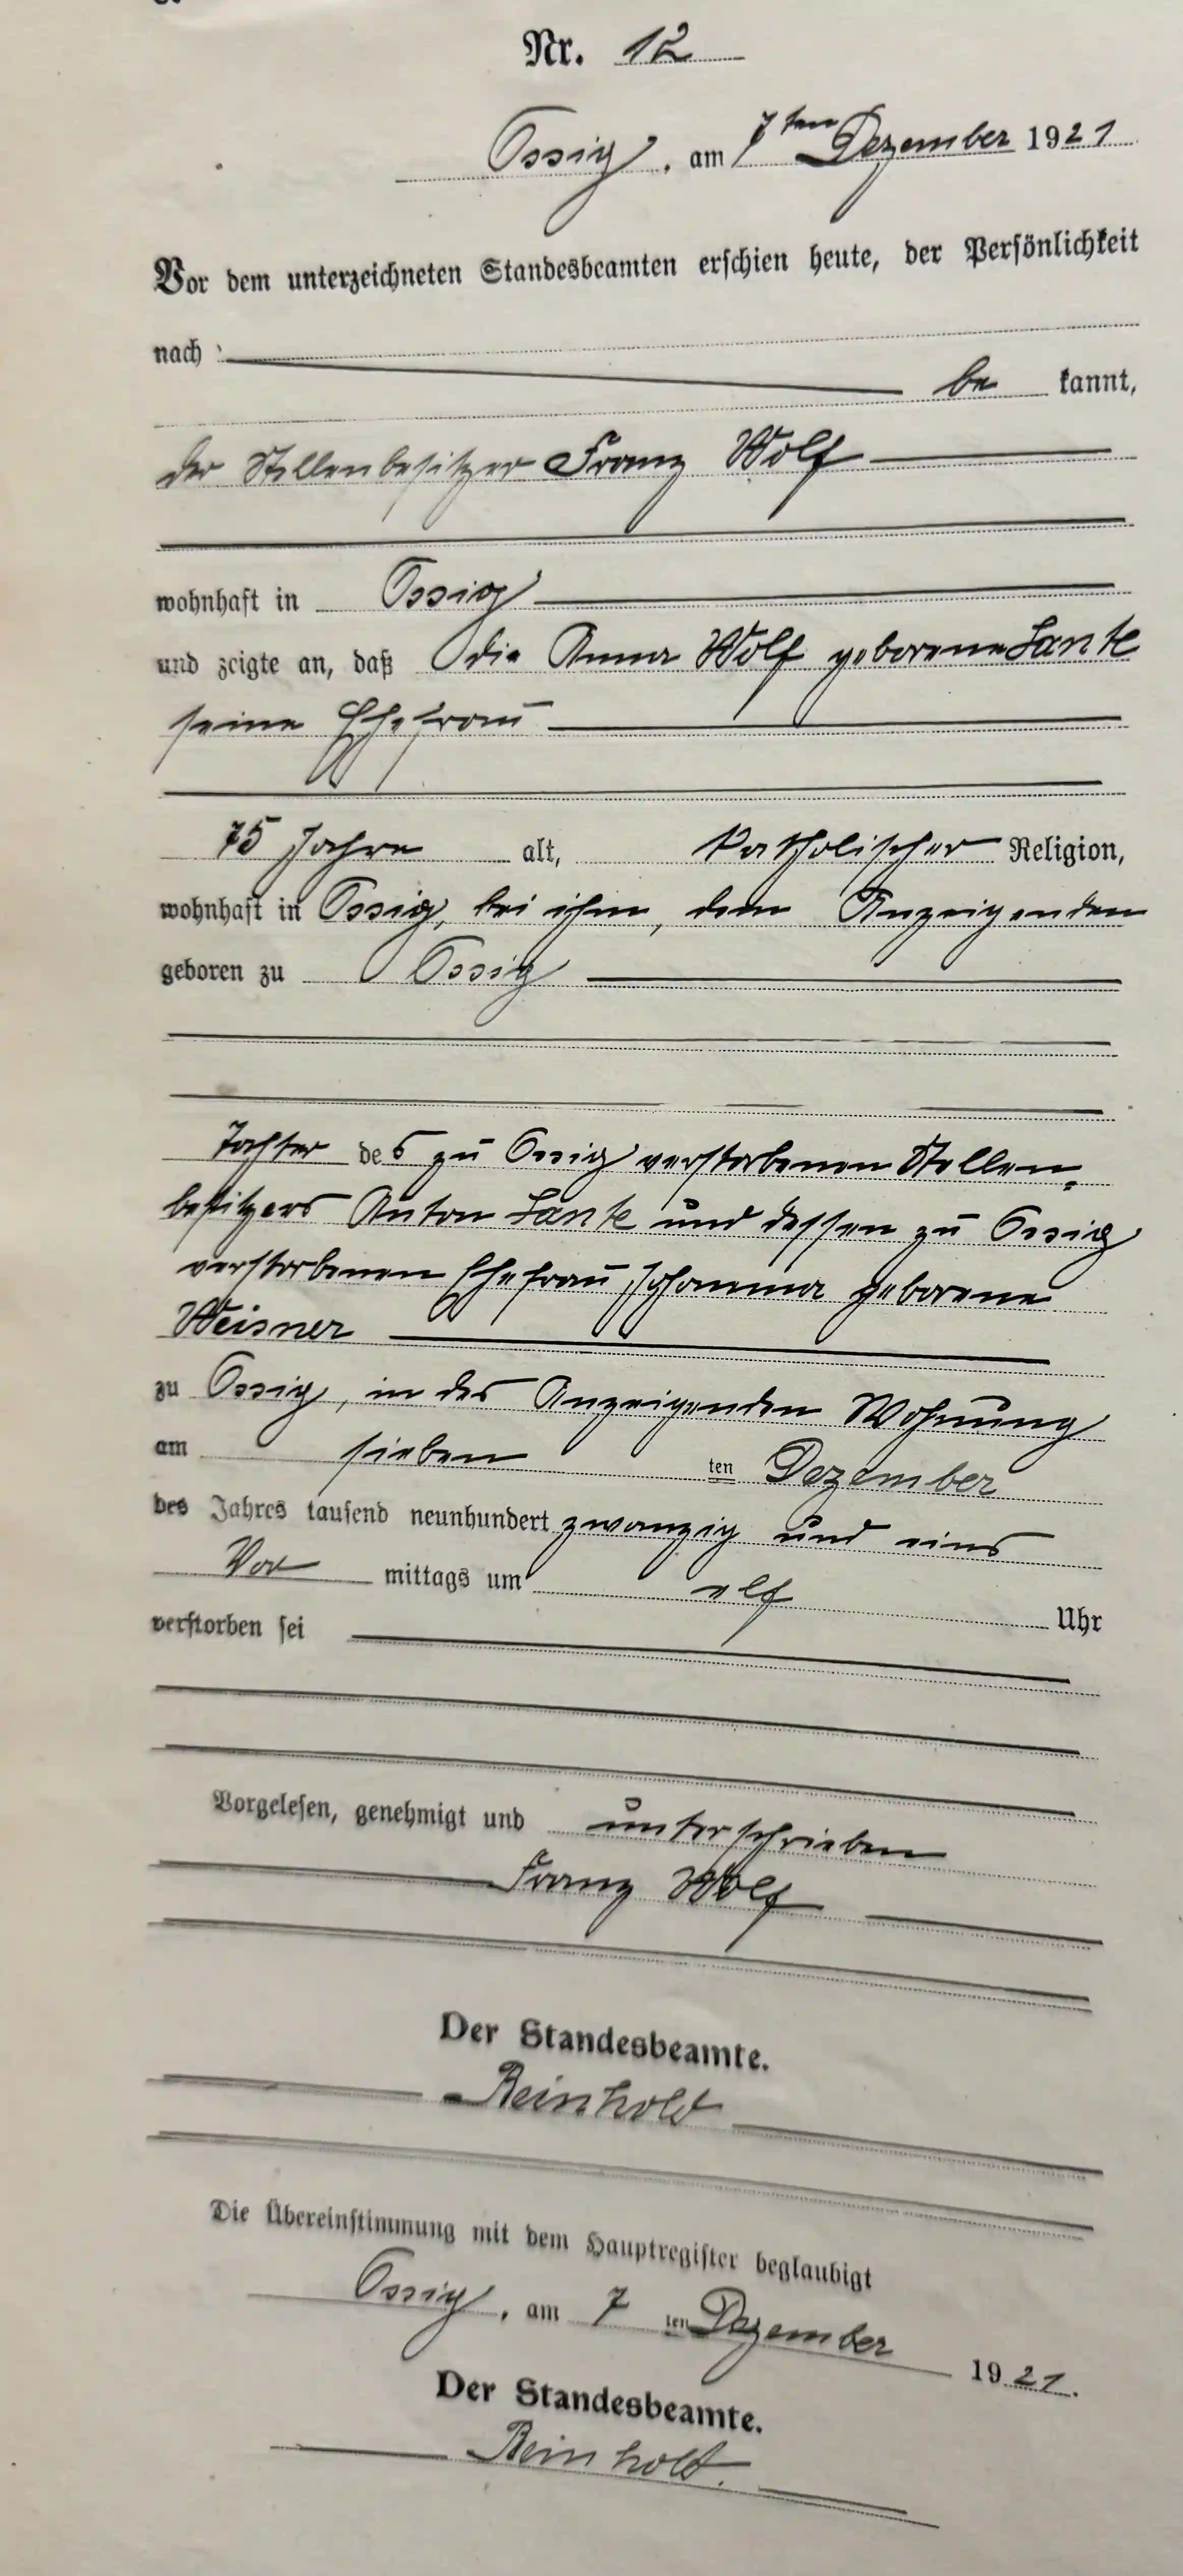 Nr. 12
Ossig, am 7ten Dezember 1921
Vor dem unterzeichneten Standesbeamten erschien heute, der Persönlichkeit
nach
be kannt,
der Stellenbesitzer Franz Wolf
wohnhaft in Ossig
und zeigte an, daß die Anna Wolf geborene Lanke
seine Ehefrau
75 Jahre alt, katholischer Religion,
wohnhaft in Ossig, bei ihm, dem Anzeigenden
geboren zu Ossig
Tochter des zu Ossig verstorbenen Stellen-
besitzers Anton Lanke und dessen zu Ossig
verstorbenen Ehefrau Johanna geborene
Weisner
zu Ossig, in des Anzeigenden Wohnung
am sieben ten Dezember
des Jahres tausend neunhundert zwanzig und eins
Vor mittags um elf Uhr
verstorben sei
Vorgelesen, genehmigt und unterschrieben
Franz Wolf
Der Standesbeamte.
Reinhold
Die Übereinstimmung mit dem Hauptregister beglaubigt
Ossig, am 7 ten Dezember 1921.
Der Standesbeamte.
Reinhold.